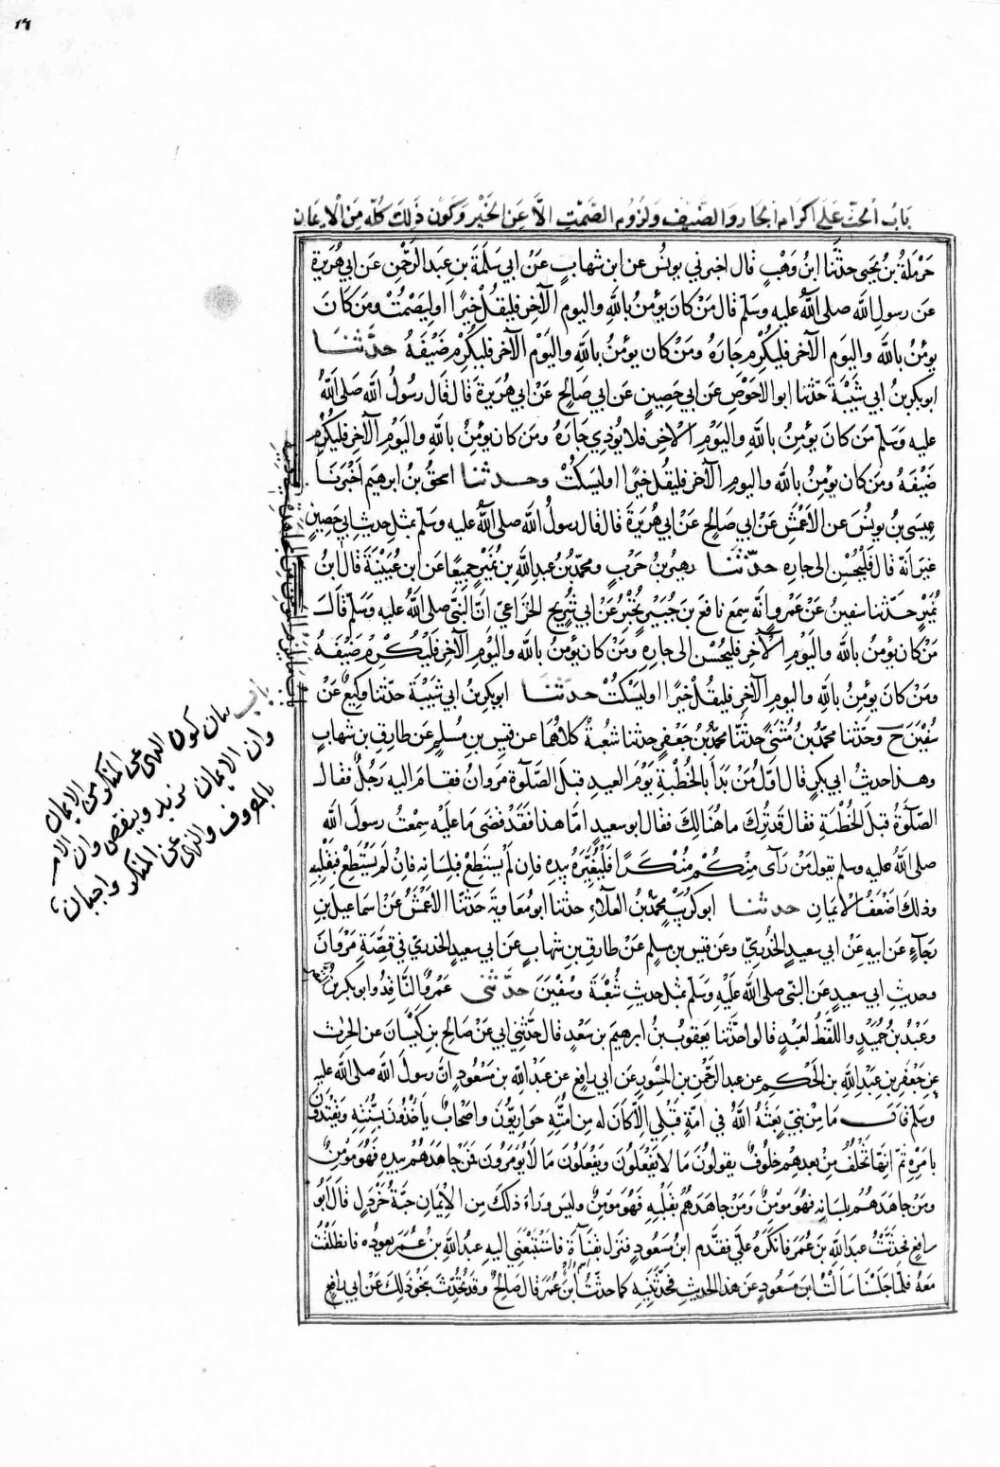 ١٦
باب الحث على اكرام الجار والضيف ولزوم الصمت الا عن الخير وكون ذلك كله من الايمان
حرملة بن يحيى حدثنا ابن وهب قال اخبرني يونس عن ابن شهاب عن ابي سلمة بن عبد الرحمن عن ابي هريرة
عن رسول الله صلى الله عليه وسلم قال من كان يؤمن بالله واليوم الآخر فليقل خيرا او ليصمت ومن كان
يؤمن بالله واليوم الآخر فليكرم جاره ومن كان يؤمن بالله واليوم الآخر فليكرم ضيفه حدثنا
ابو بكر بن ابي شيبة حدثنا ابو الاحوص عن ابي حصين عن ابي صالح عن ابي هريرة قال قال رسول الله صلى الله
عليه وسلم من كان يؤمن بالله واليوم الآخر فلا يؤذي جاره ومن كان يؤمن بالله واليوم الآخر فليكرم
ضيفه ومن كان يؤمن بالله واليوم الآخر فليقل خيرا او ليسكت وحدثنا اسحق بن ابرهيم اخبرنا
عيسى بن يونس عن الاعمش عن ابي صالح عن ابي هريرة قال قال رسول الله صلى الله عليه وسلم بمثل حديث ابي حصين
غير انه قال فليحسن الى جاره حدثنا زهير بن حرب ومحمد بن عبد الله بن نمير جميعا عن ابن عيينة قال ابن
نمير حدثنا سفين عن عمرو انه سمع نافع بن جبير يخبر عن ابي شريح الخزاعي ان النبي صلى الله عليه وسلم قال
من كان يؤمن بالله واليوم الآخر فليحسن الى جاره ومن كان يؤمن بالله واليوم الآخر فليكرم ضيفه
ومن كان يؤمن بالله واليوم الآخر فليقل خيرا او ليسكت حدثنا ابو بكر بن ابي شيبة حدثنا وكيع عن
سفين ح وحدثنا محمد بن مثنى حدثنا محمد بن جعفر حدثنا شعبة كلاهما عن قيس بن مسلم عن طارق بن شهاب
وهذا حديث ابي بكر قال اول من بدأ بالخطبة يوم العيد قبل الصلوة مروان فقام اليه رجل فقال
الصلوة قبل الخطبة فقال قد ترك ما هنالك فقال ابو سعيد اما هذا فقد قضى ما عليه سمعت رسول الله
صلى الله عليه وسلم يقول من رآى منكم منكرا فليغيره بيده فان لم يستطع فبلسانه فان لم يستطع فبقلبه
وذلك اضعف الايمان حدثنا ابو كريب محمد بن العلاء حدثنا ابو معاوية حدثنا الاعمش عن اسماعيل بن
رجاء عن ابيه عن ابي سعيد الخدري وعن قيس بن مسلم عن طارق بن شهاب عن ابي سعيد الخدري في قصة مروان
وحديث ابي سعيد عن النبي صلى الله عليه وسلم بمثل حديث شعبة وسفين حدثني عمرو الناقد وابو بكر بن النضر
وعبد بن حميد واللفظ لعبد قالوا حدثنا يعقوب بن ابرهيم بن سعد قال حدثني ابي عن صالح بن كيسان عن الحرث
عن جعفر بن عبد الله بن الحكم عن عبد الرحمن بن المسور عن ابي رافع عن عبد الله بن مسعود ان رسول الله صلى الله عليه
وسلم قال ما من نبي بعثه الله في امة قبلي الا كان له من امته حواريون واصحاب ياخذون بسنته ويقتدون
بامره ثم انها تخلف من بعدهم خلوف يقولون ما لا يفعلون ويفعلون ما لا يؤمرون فمن جاهدهم بيده فهو مؤمن
ومن جاهدهم بلسانه فهو مومن ومن جاهدهم بقلبه فهو مومن وليس وراء ذلك من الايمان حبة خردل قال ابو
رافع فحدثت عبد الله بن عمر فانكره علي فقدم ابن مسعود فنزل بقناة فاستتبعني اليه عبد الله بن عمر يعوده فانطلقت
معه فلما جلسنا سالت ابن مسعود عن هذا الحديث فحدثنيه كما حدثت ابن عمر قال صالح وقد تحدث بنحو ذلك عن ابي رافع
باب بيان كون النهي عن المنكر من الايمان
وان الايمان يزيد وينقص وان الامر
بالمعروف والنهي عن المنكر واجبان